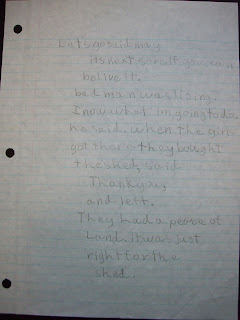 Let's go said may
its next sorself you can
belive it.
bad man was lising.
I now what im going to do
he said. when the girls
got there they bought
the shed, said
Thank you,
and left.
They had a peace of
Land. it was just
right for the
shed.